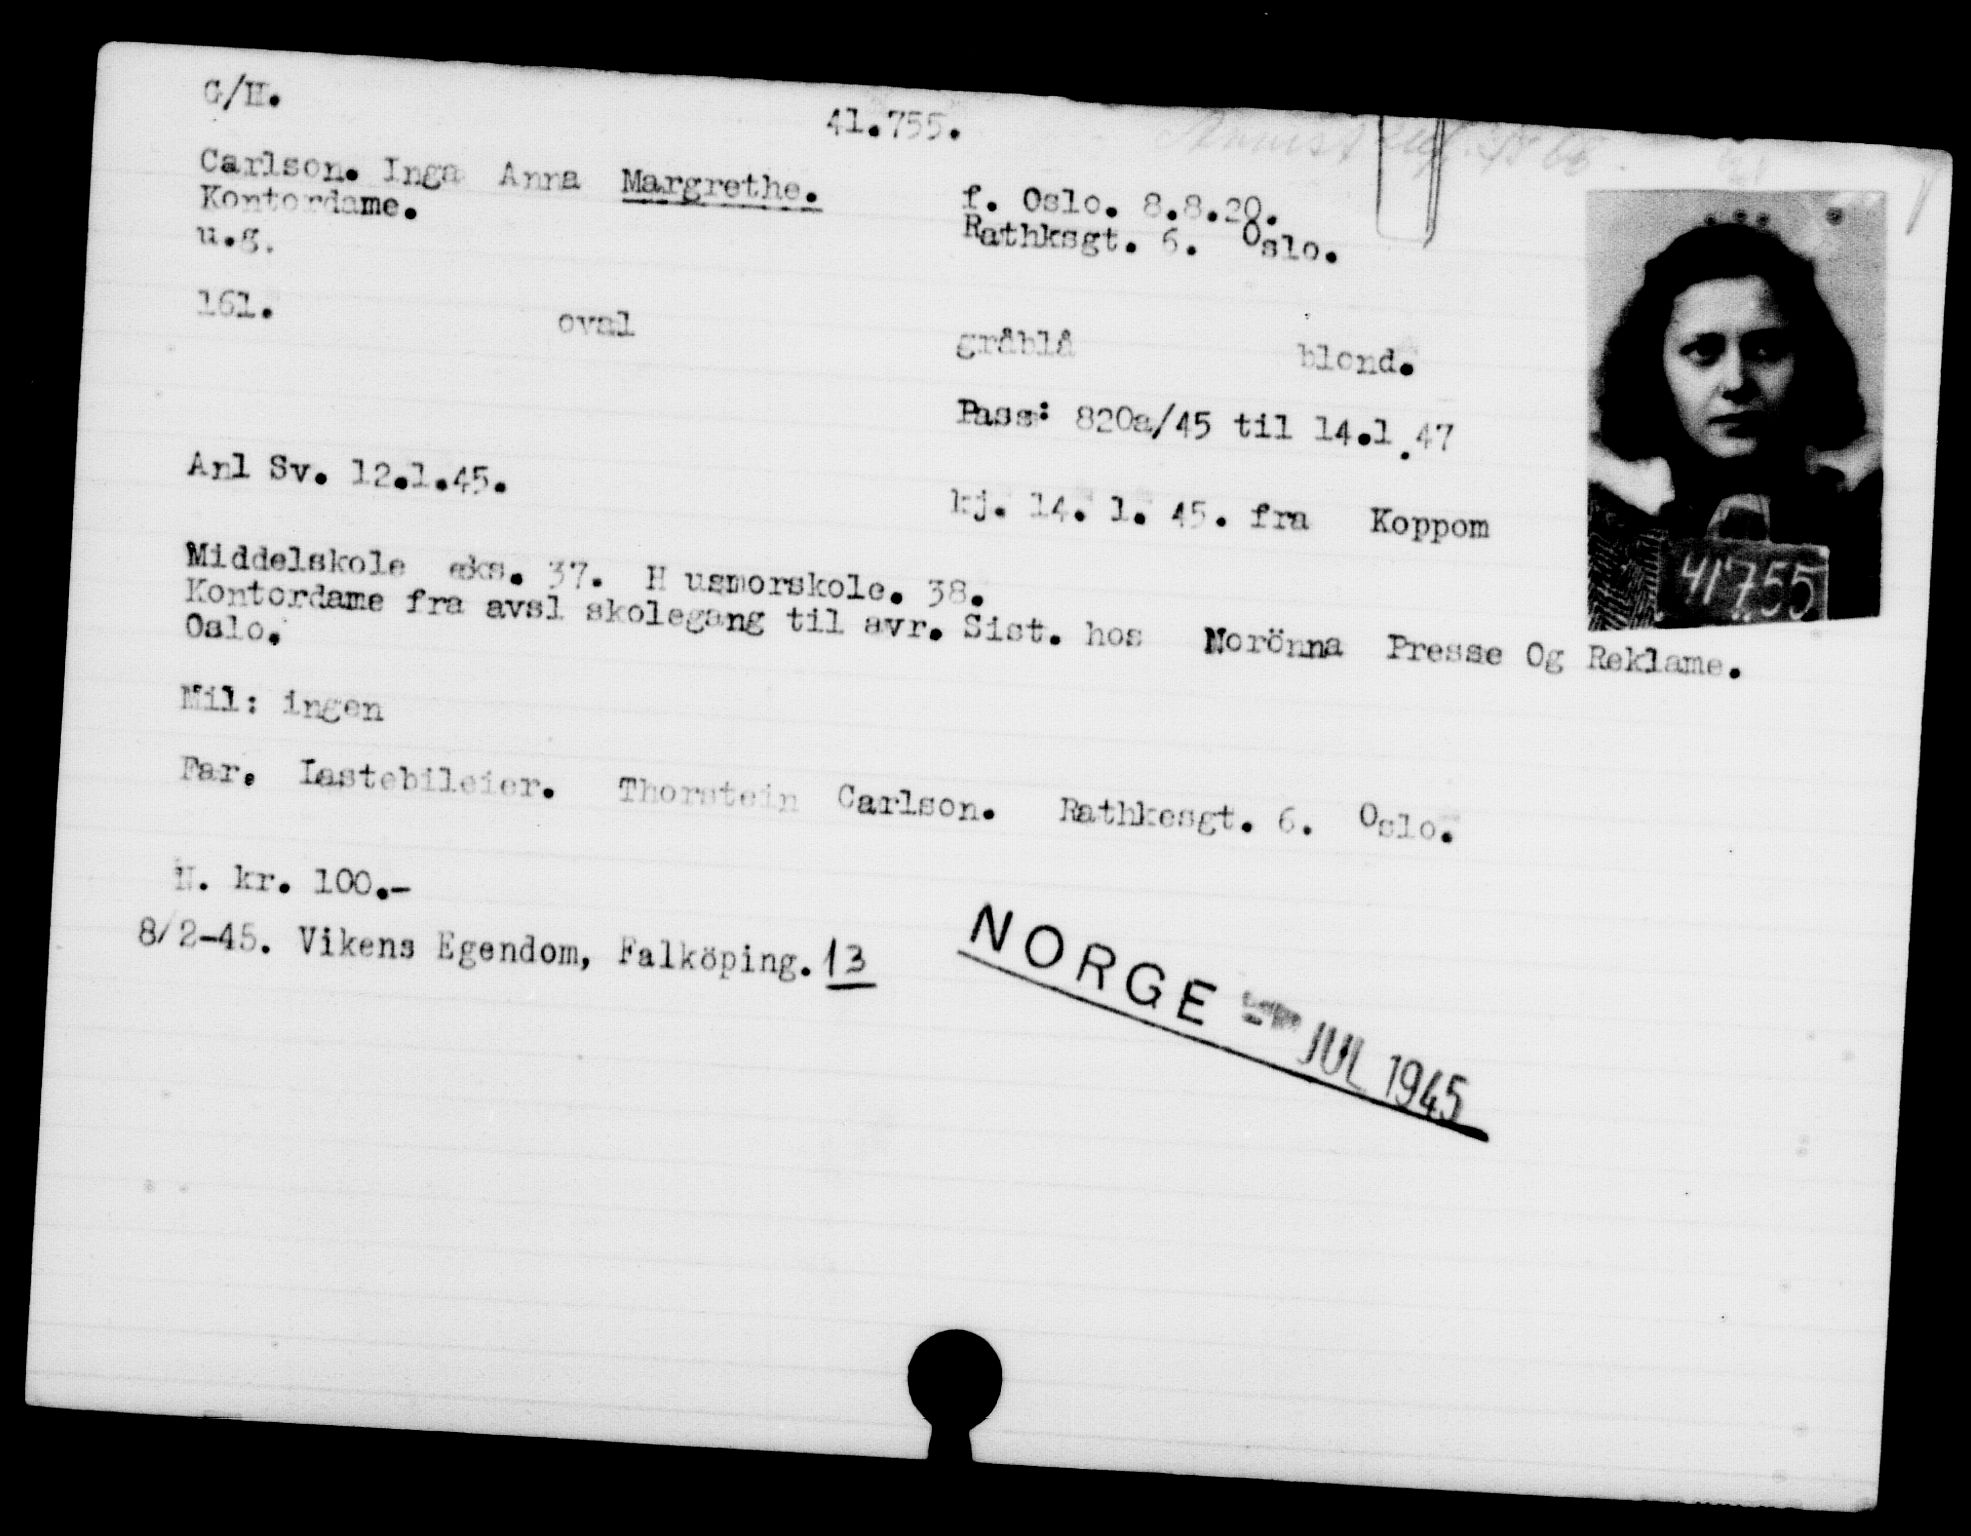 G/H.
41.755.
Carlson. Inga Anna Margrethe.
f. Oslo. 8.8.20.
Kontordame.
Rathksgt. 6. Oslo.
u.g.
161. oval gråblå blond.
Pass: 820a/45 til 14.1.47
Anl Sv. 12.1.45.
kj. 14. 1. 45. fra Koppom
Middelskole eks. 37. H usmorskole. 38.
Kontordame fra avsl skolegang til avr. Sist. hos Norönna Presse Og Reklame.
Oslo.
Mil: ingen
Far. Lastebileier. Thorstein Carlson. Rathkesgt. 6. Oslo.
N. kr. 100.-
8/2-45. Vikens Egendom, Falköping. 13
NORGE - JUL 1945
41755